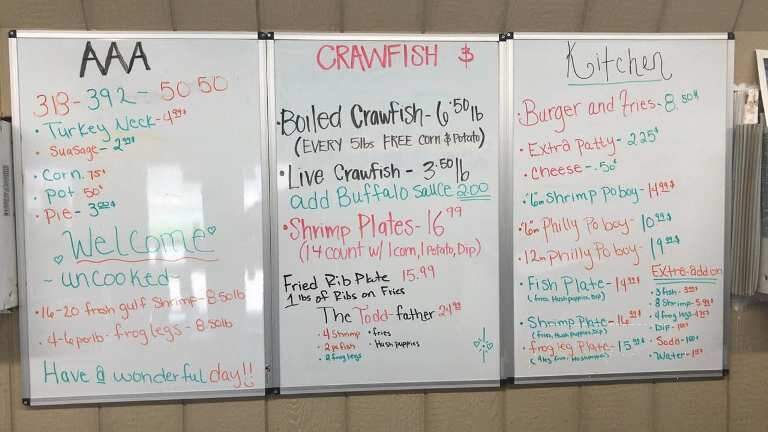 AAA
318-392-5050
• Turkey Neck-4.99$
• Suasage-2.99$
• Corn 75¢
• Pot 50¢
• Pie-3.00$
Welcome
~uncooked~
• 16-20 fresh gulf Shrimp-8.50lb
• 4-6 per lb-frog legs-8.50lb
Have a wonderful day!!
CRAWFISH $
• Boiled Crawfish-6.50lb
(EVERY 5lbs FREE Corn & Potato)
• Live Crawfish-3.50lb
add Buffalo sauce 2.00
• Shrimp Plates-16.99
(14 count w/ 1 corn, 1 Potato, Dip)
Fried Rib Plate 15.99
1 lbs of Ribs on Fries
The Todd-father 24.99
• 4 Shrimp • fries
• 2 pc fish • Hushpuppies
• 2 frog legs
Kitchen
• Burger and Fries-8.50
• Extra Patty-2.25$
• Cheese-.50¢
• 6in Shrimp Poboy-14.99$
• 6in Philly Poboy-10.99$
• 12in Philly Poboy-19.99$
• Fish Plate-14.99$
(fries, Hushpuppies, Dip)
• Shrimp Plate-16.99$
(fries, Hushpuppies, Dip)
• frog leg Plate-15.99$
Extra-add on
• 3 fish-
• 8 Shrimp-
• 4 frog legs-
• Dip-
• Soda-
• Water-